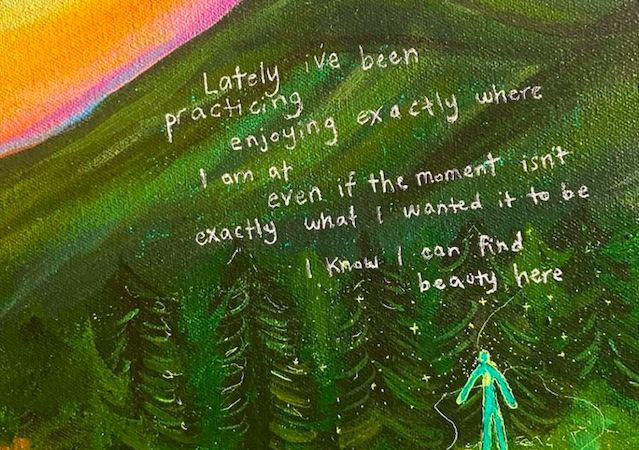 Lately i've been
practicing
enjoying exactly where
I am at
even if the moment isn't
exactly what I wanted it to be
I know I can find
beauty here